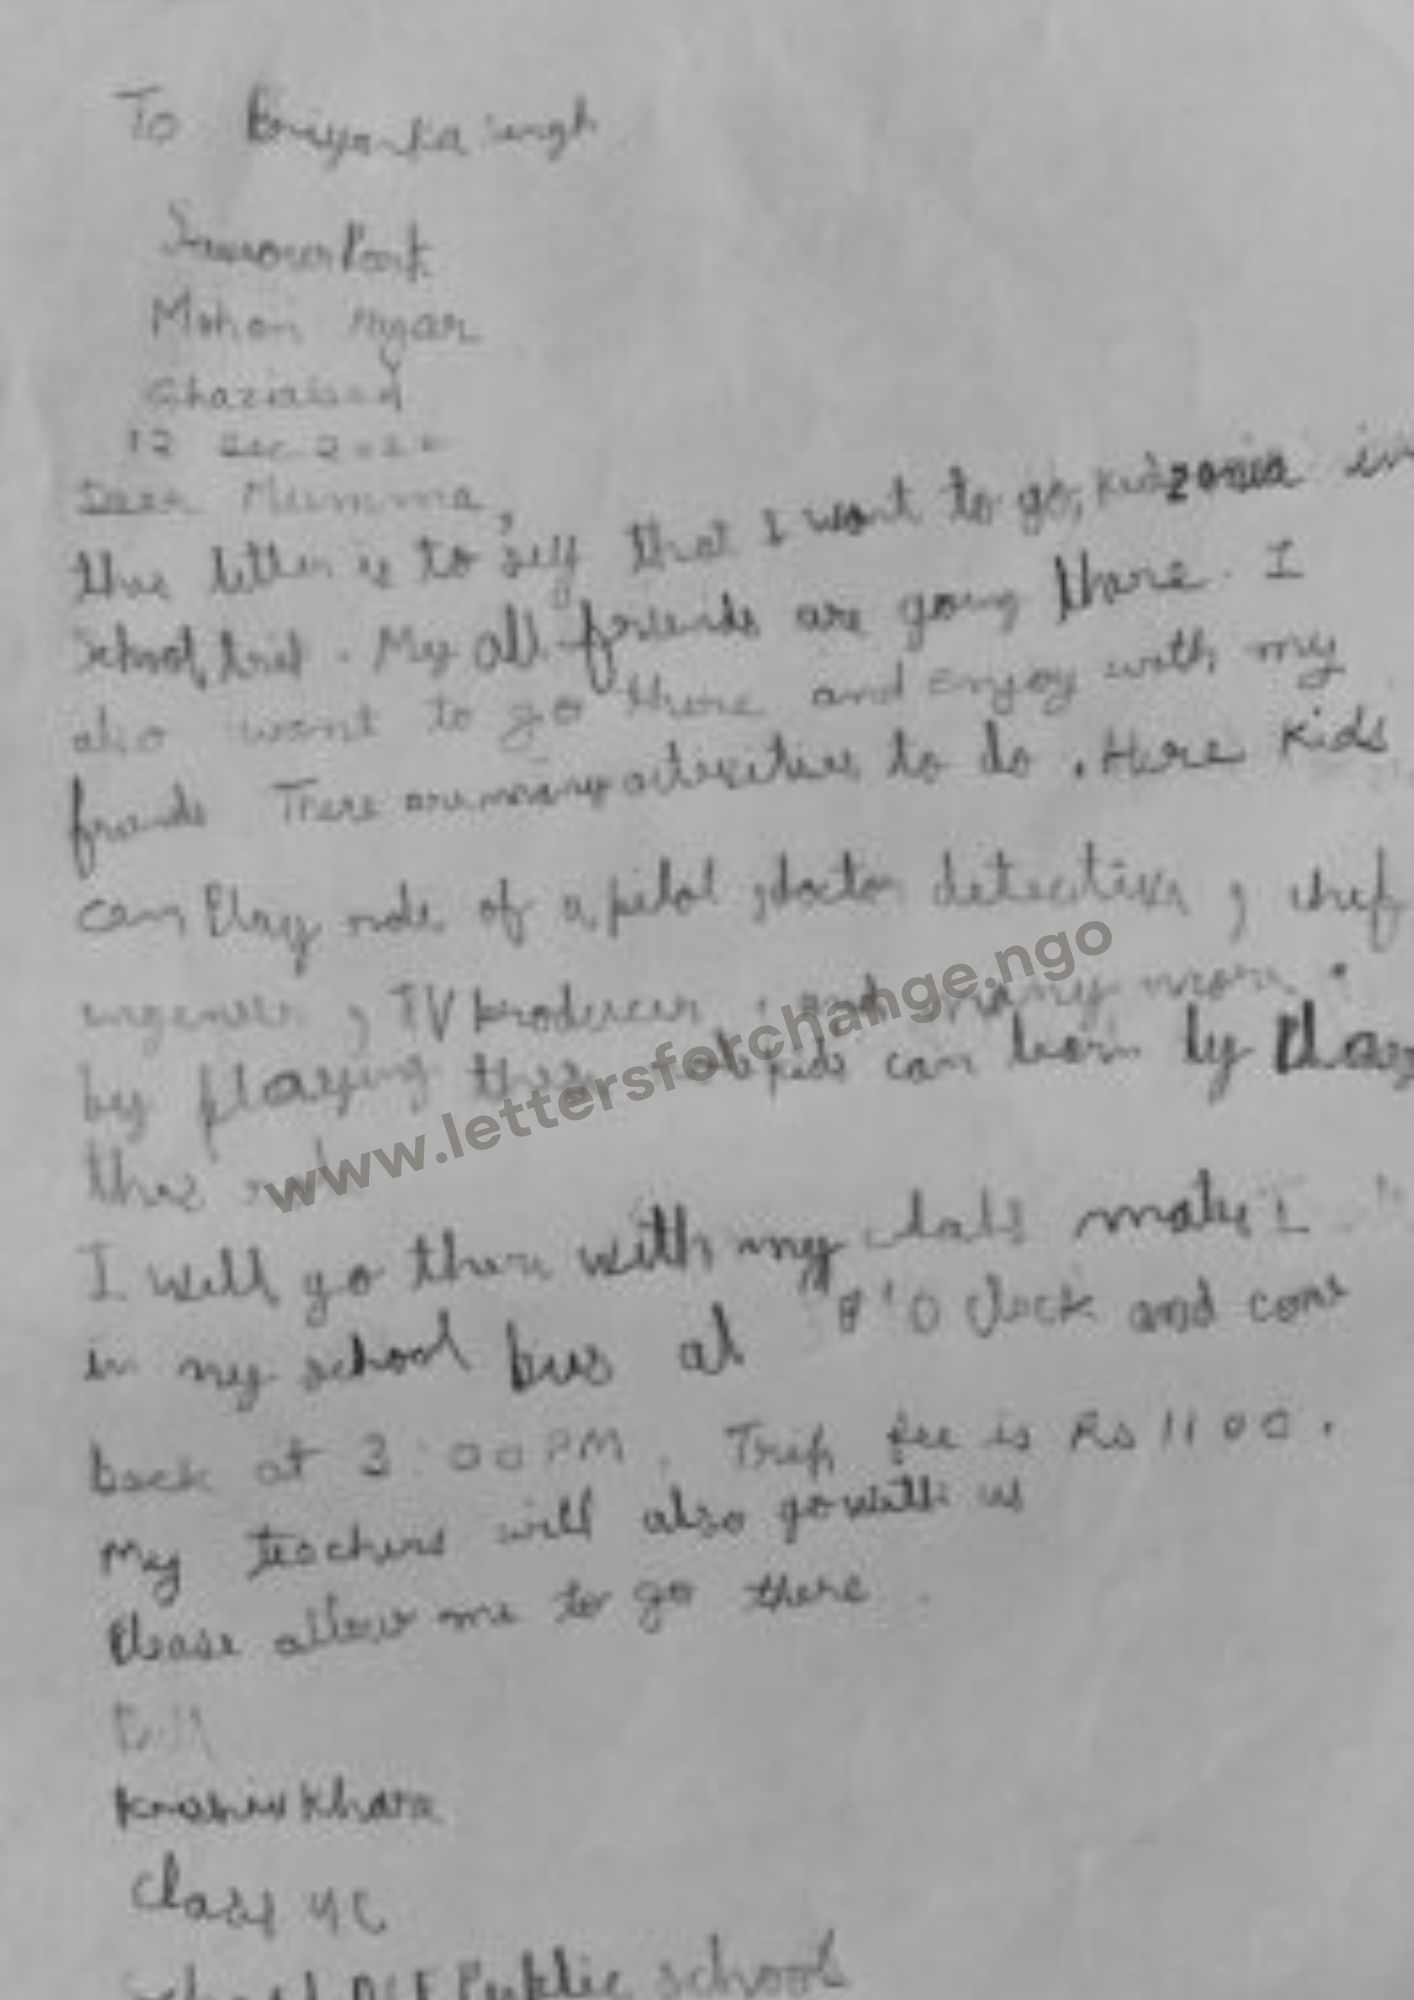 To Priyanka singh
Park
Mohan
Ghaziabad
12 Dec 2022
Dear Mumma,
this letter is to that I want to go, Kidzania in
School . My all friends are going thare . I
also want to go there and enjoy with my
friends There are many to do . Here Kids
can Play role of a pilot , doctor detective , chef
, TV producer , and many more .
by playing kids can learn by
this
I will go there with my I
in my school bus at 8'O Clock and come
back at 3:00 PM . Trip fee is Rs 1100 .
My teachers will also go with us
Please allow me to go there .
Khare
Class 4C
School Public School
www.lettersforchange.ngo